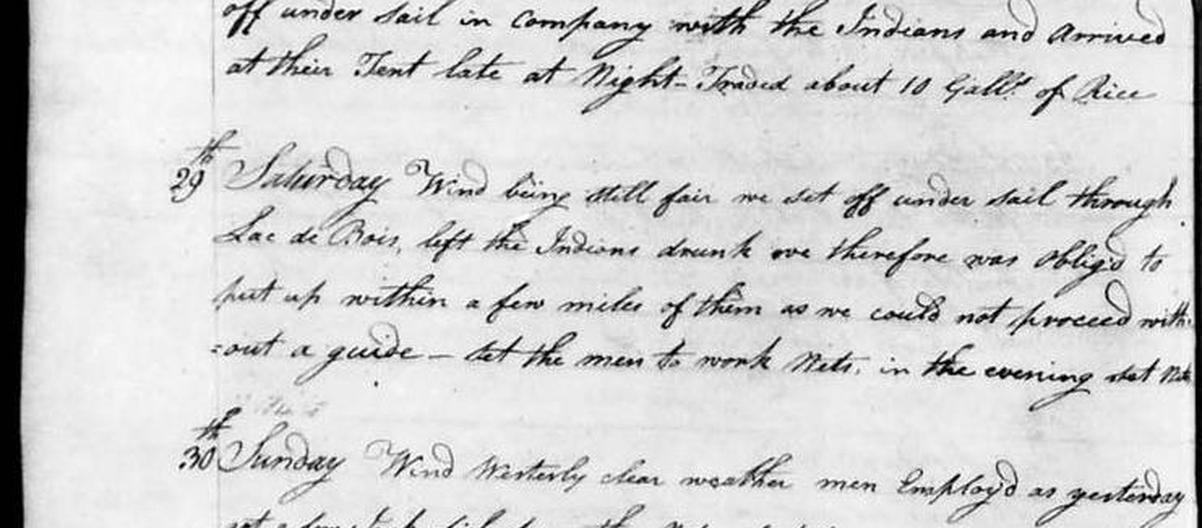 off under sail in Company with the Indians and Arrived
at their Tent late at Night - Traded about 10 Galls. of Rice
29th Saturday Wind being still fair we set off under sail through
Lac de Bois, left the Indians drunk we therefore was Oblig'd to
put up within a few miles of them as we could not proceed with-
=out a guide - set the men to work Nets. in the evening set Nets
30th Sunday Wind Westerly clear weather men Employ'd as yesterday